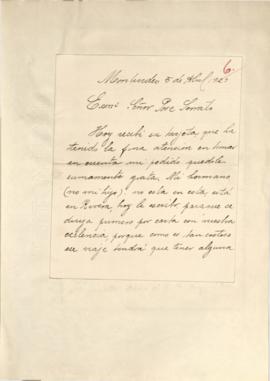 6
Montevideo 5 de Abril 923
Exmo Señor José Serrato
Hoy recibí su tarjeta que ha
tenido la fina atencion en tomar
en cuenta mi pedido quedole
sumamente grata. Mi hermano
(no mi hijo), no esta en esta, está
en Rivera, hoy le escribo para que se
dirija primero por carta con vuestra
exelencia, porque como es tan costoso
ese viaje tendrá que tener alguna